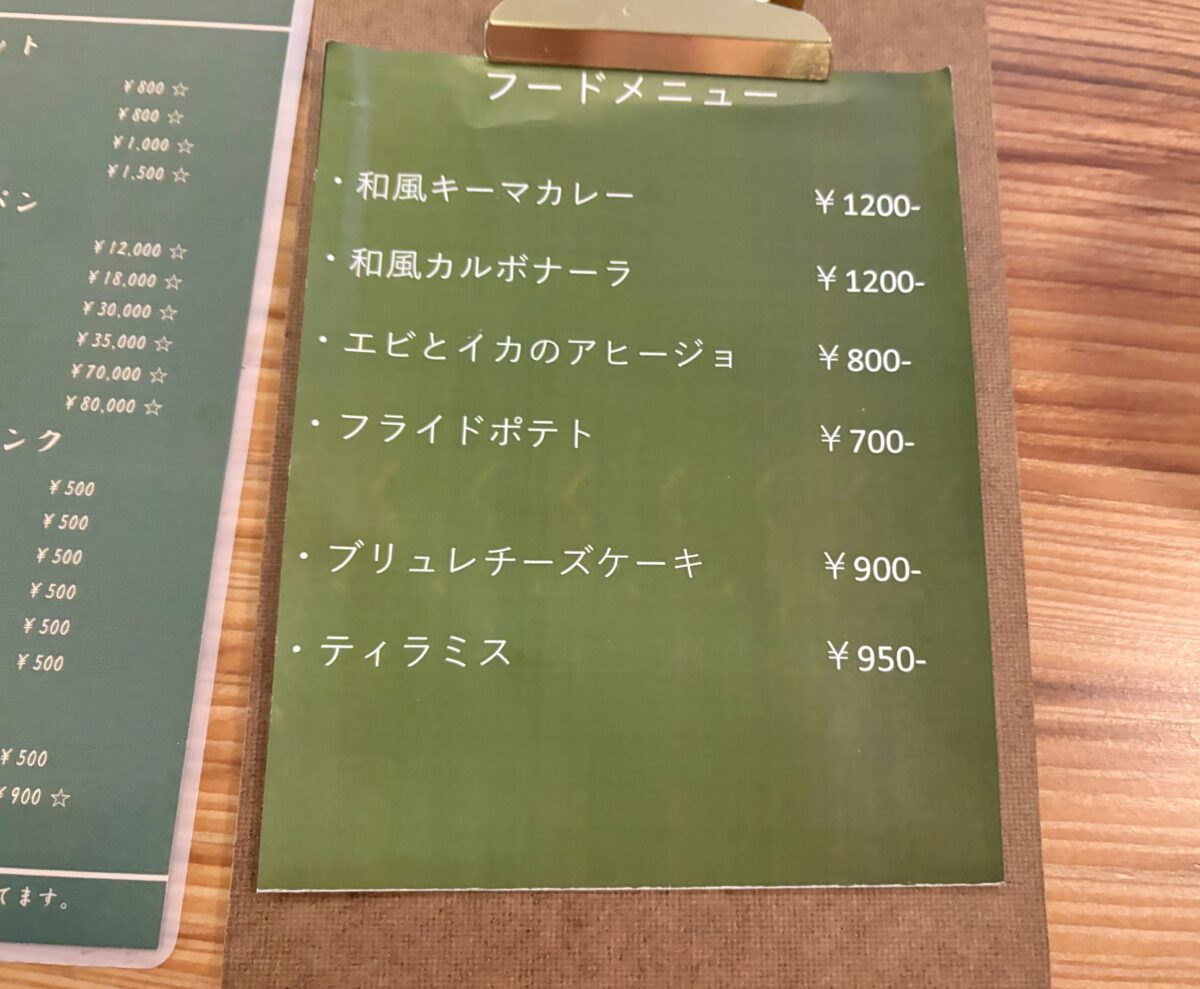 ット
¥800 ☆
¥800 ☆
¥1,000 ☆
¥1,500 ☆
¥12,000 ☆
¥18,000 ☆
¥30,000 ☆
¥35,000 ☆
¥70,000 ☆
¥80,000 ☆
ンク
¥500
¥500
¥500
¥500
¥500
¥500
¥500
¥900 ☆
てます。
フードメニュー
・和風キーマカレー ¥1200-
・和風カルボナーラ ¥1200-
・エビとイカのアヒージョ ¥800-
・フライドポテト ¥700-
・ブリュレチーズケーキ ¥900-
・ティラミス ¥950-